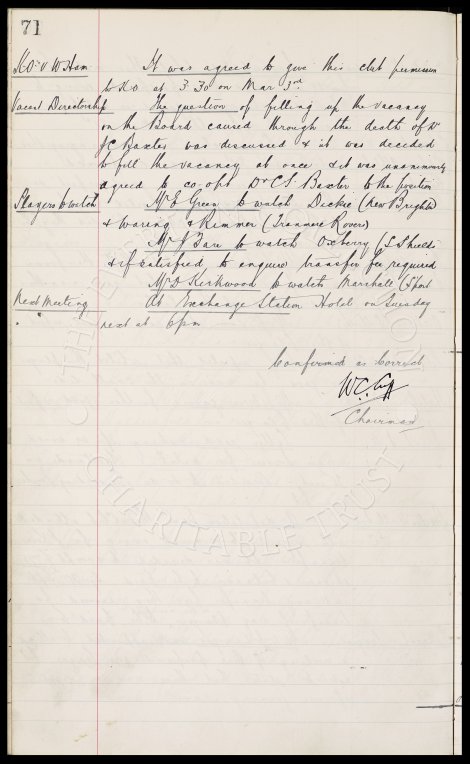 71
KO. v W Ham It was agreed to give this club permission
to KO at 3.30 on Mar 3rd
Vacant Directorship The question of filling up the vacancy
on the Board caused through the death of Dr
J C Baxter was discussed & it was decided
to fill the vacancy at once & it was unanimously
agreed to co opt Dr C S Baxter to the position
Players to watch Mr E Green to watch Dickie (New Brighton)
& Waring & Rimmer (Tranmere Rovers)
Mr J to watch Oxberry (S Shields
& if satisfied to enquire transfer fee required
Mr D Kirkwood to watch Marshall (S'port
Next Meeting At Exchange Station Hotel on Tuesday
" " next at 6 pm
Confirmed as Correct
W.C. Cuff
Chairman
THE
CHARITABLE TRUST